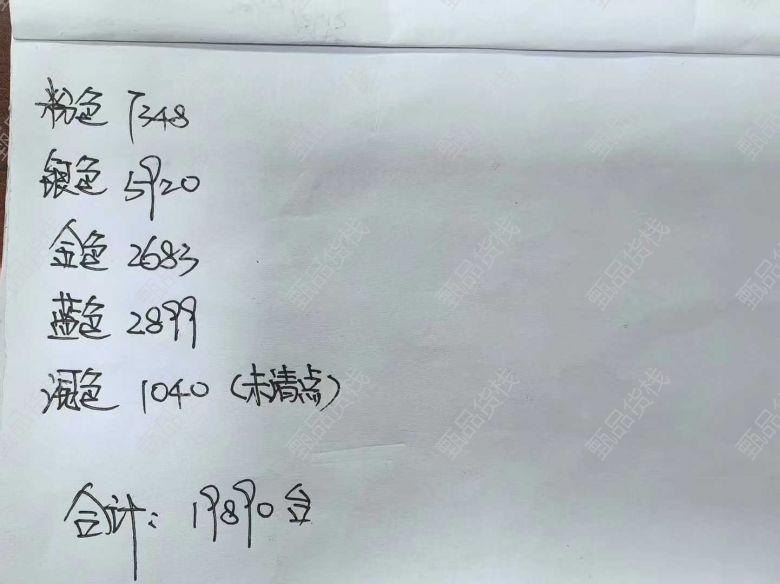 粉色 7348
银色 5920
金色 2683
蓝色 2899
混色 1040 (未清点)
合计: 19890台
甄品货栈